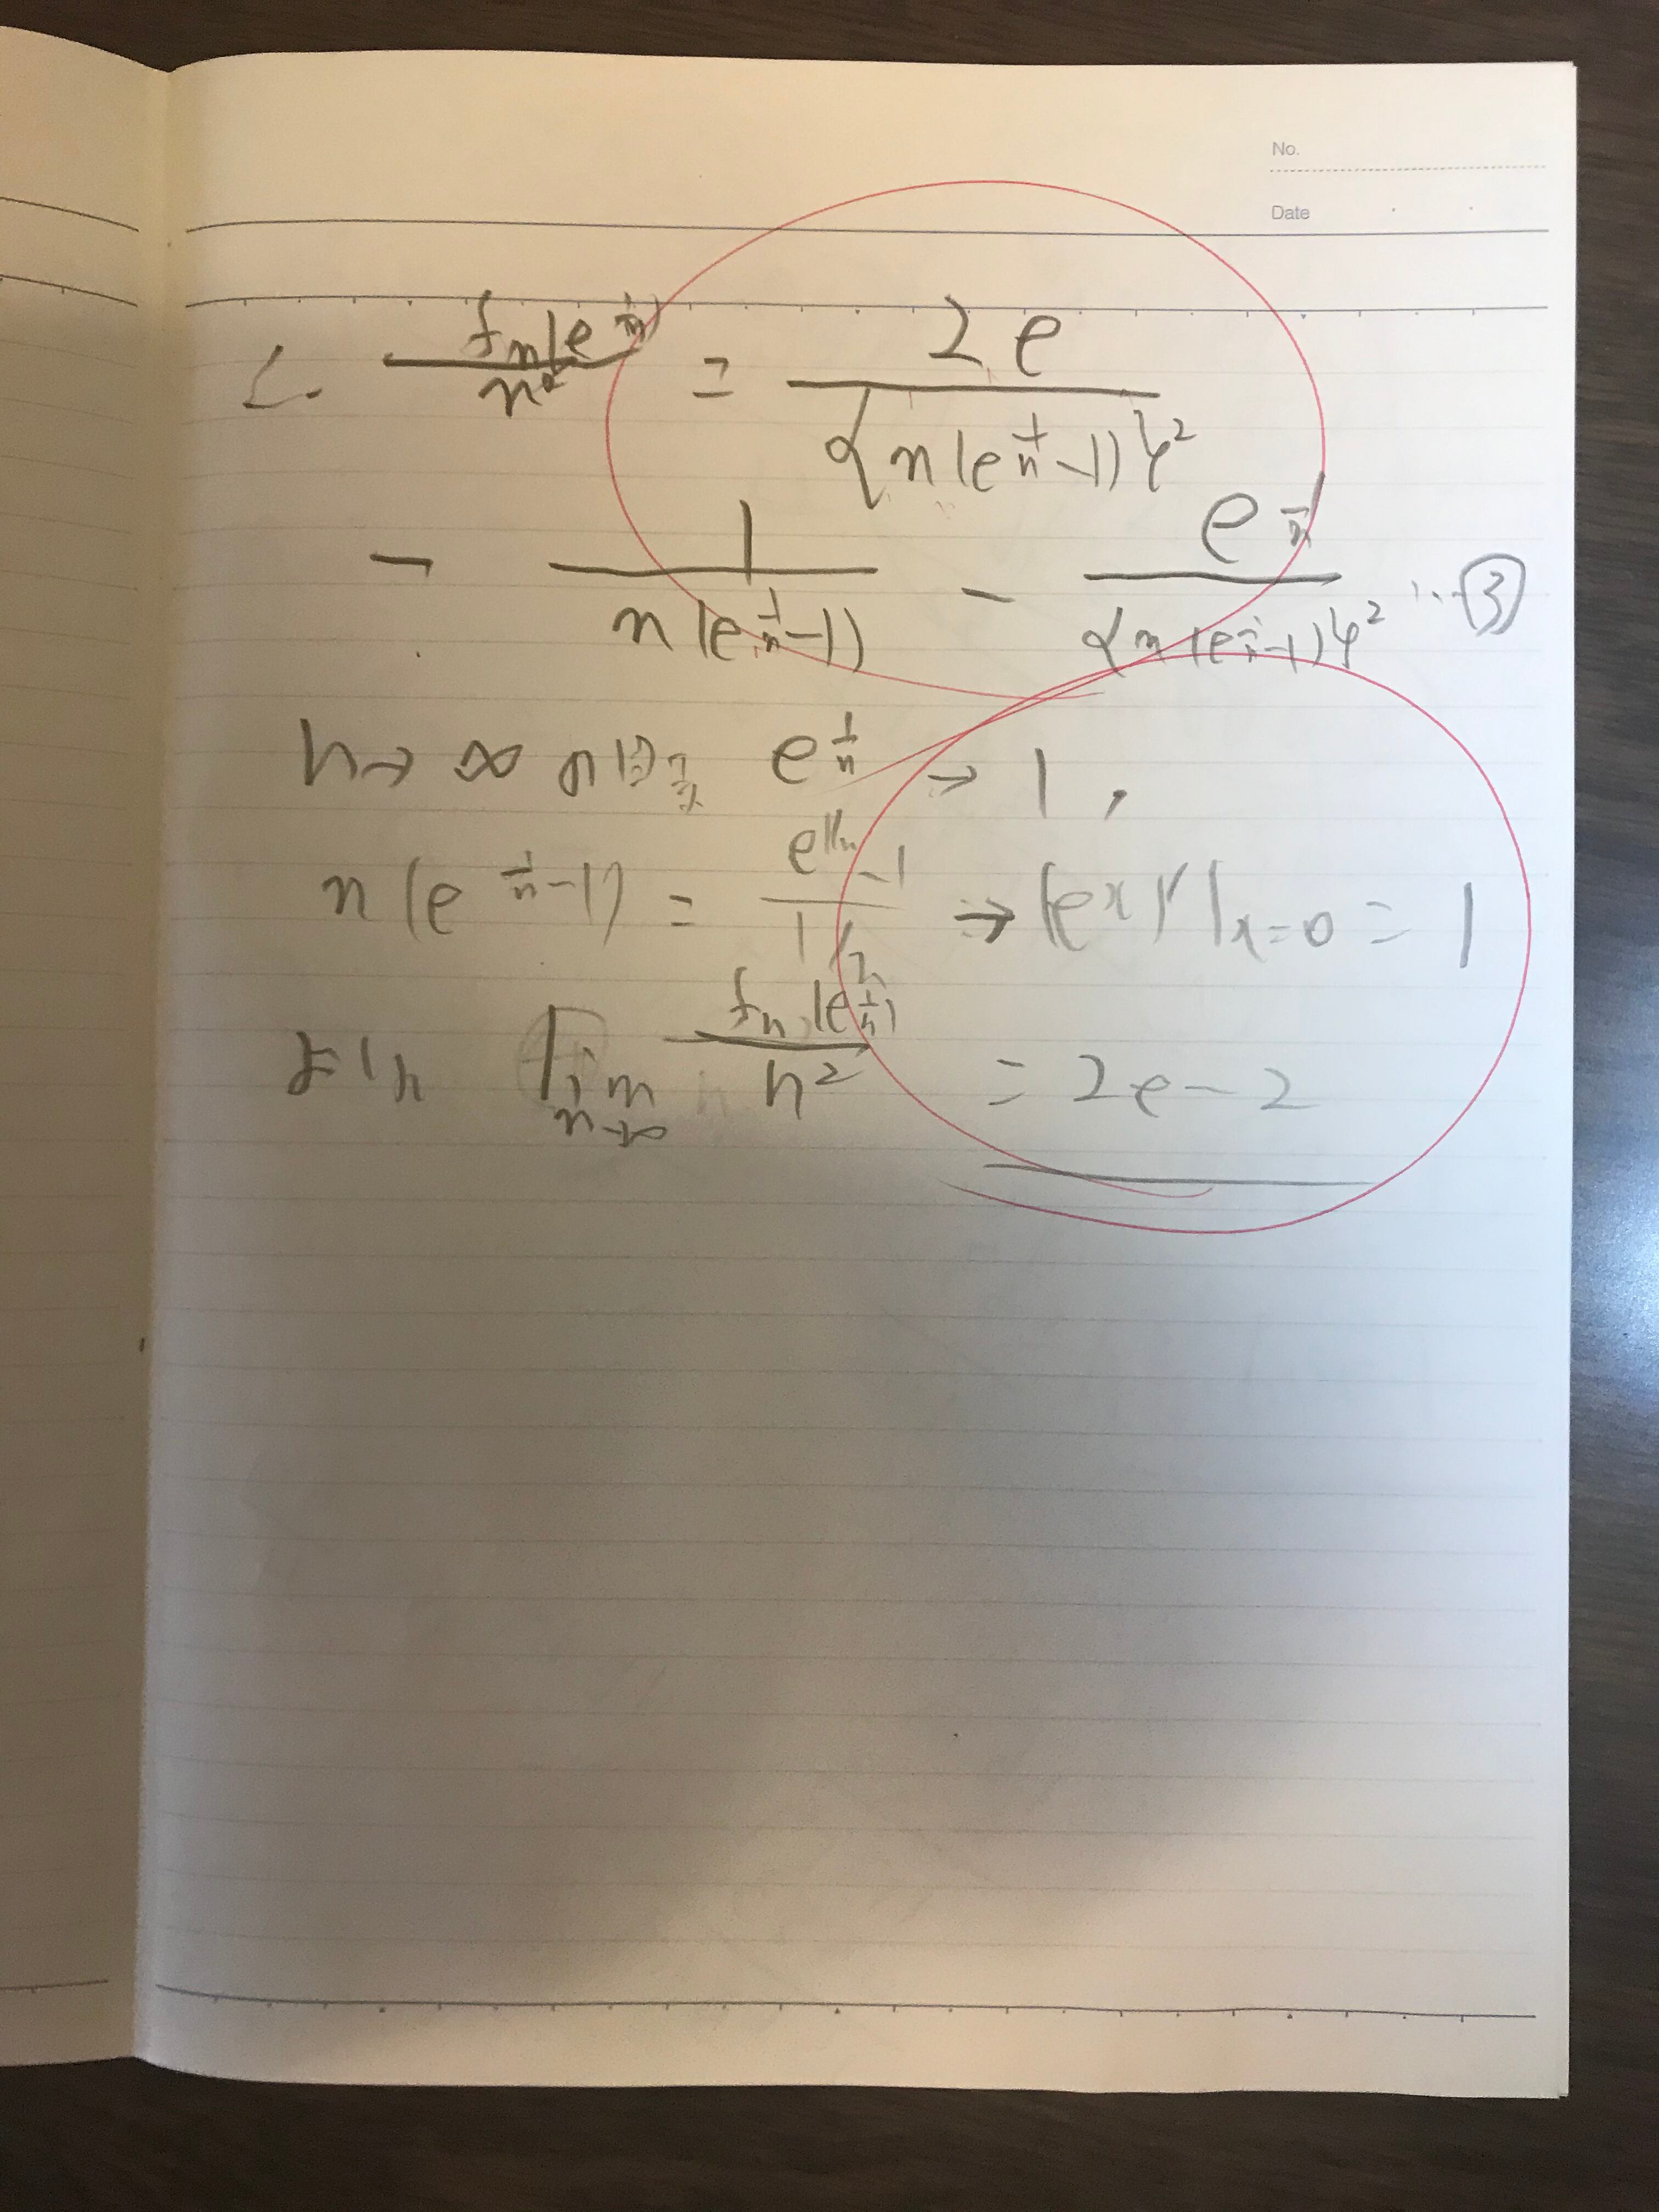 No.
Date
∴ f_n(e^{1/n})/n^2 = 2e/{n(e^{1/n}-1)}^2
- 1/n(e^{1/n}-1) - e^{1/n}/{n(e^{1/n}-1)}^2 …③
n→∞のとき e^{1/n} → 1,
n(e^{1/n}-1) = e^{1/n}-1/1/n → (e^x)'|_{x=0} = 1
より lim_{n→∞} f_n(e^{1/n})/n^2 = 2e-2